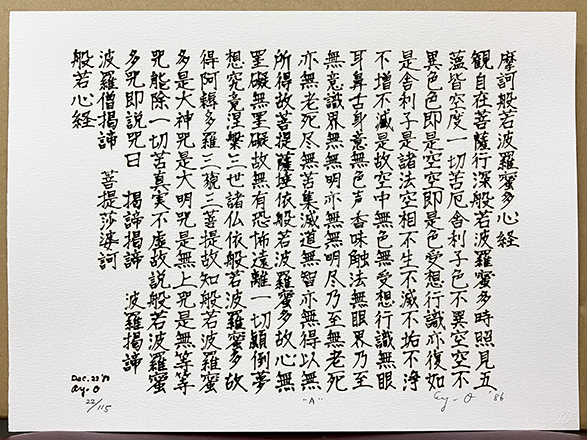 摩訶般若波羅蜜多心経
観自在菩薩行深般若波羅蜜多時照見五
蘊皆空度一切苦厄舎利子色不異空空不
異色色即是空空即是色受想行識亦復如
是舎利子是諸法空相不生不滅不垢不浄
不増不減是故空中無色無受想行識無眼
耳鼻舌身意無色声香味触法無眼界乃至
無意識界無無明亦無無明尽乃至無老死
亦無老死尽無苦集滅道無智亦無得以無
所得故菩提薩埵依般若波羅蜜多故心無
罣礙無罣礙故無有恐怖遠離一切顛倒夢
想究竟涅槃三世諸仏依般若波羅蜜多故
得阿耨多羅三藐三菩提故知般若波羅蜜
多是大神咒是大明咒是無上咒是無等等
咒能除一切苦真実不虚故説般若波羅蜜
多咒即説咒曰 掲諦掲諦 波羅掲諦
波羅僧掲諦 菩提莎婆訶
般若心経
Ay-O
22/115
"A"
Ay-O '86